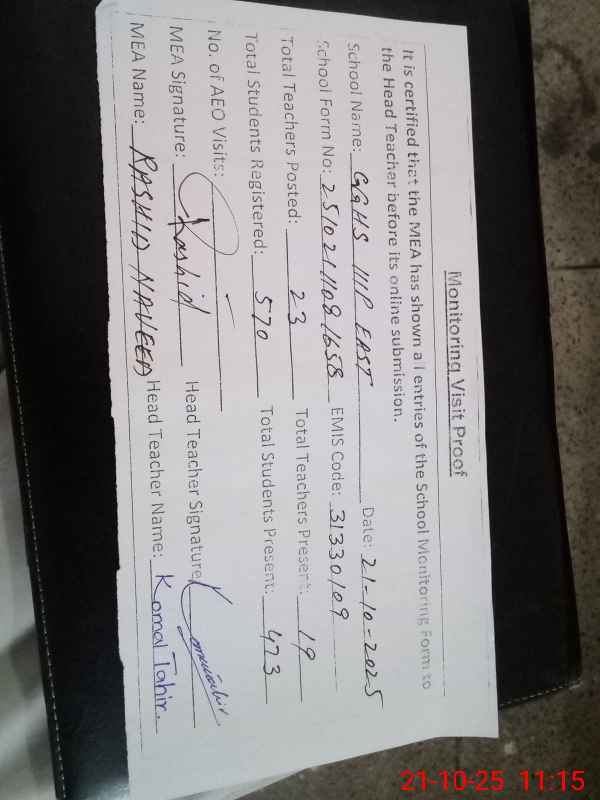 Monitoring Visit Proof
It is certified that the MEA has shown all entries of the School Monitoring Form to
the Head Teacher before its online submission.
School Name: GGHS 111P EAST Date: 21-10-2025
School Form No: EMIS Code: 31330109
Total Teachers Posted: 23 Total Teachers Present: 19
Total Students Registered: 570 Total Students Present: 473
No. of AEO Visits: -
MEA Signature: Rashid Head Teacher Signature
MEA Name: RASHID NAVEED Head Teacher Name: Komal Tahir.
21-10-25 11:15